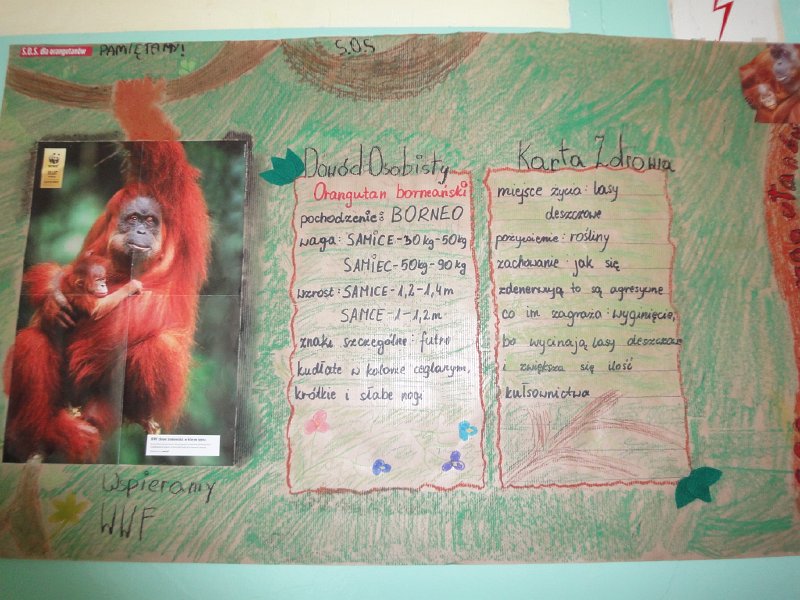 S.O.S. dla orangutanów
PAMIĘTAMY!
S.O.S
WWF
Dowód Osobisty
Orangutan borneański
pochodzenie: BORNEO
waga: SAMICE-30kg-50kg
SAMIEC-50kg-90kg
wzrost: SAMICE-1,2-1,4m
SAMCE-1-1,2m
znaki szczególne: futro
kudłate w kolorze ceglanym,
krótkie i słabe nogi
Karta Zdrowia
miejsce życia: lasy
deszczowe
pożywienie: rośliny
zachowanie: jak się
zdenerwują to są agresywne
co im zagraża: wyginięcie,
bo wycinają lasy deszczowe
i zwiększa się ilość
kułsownictwa
Wspieramy
WWF